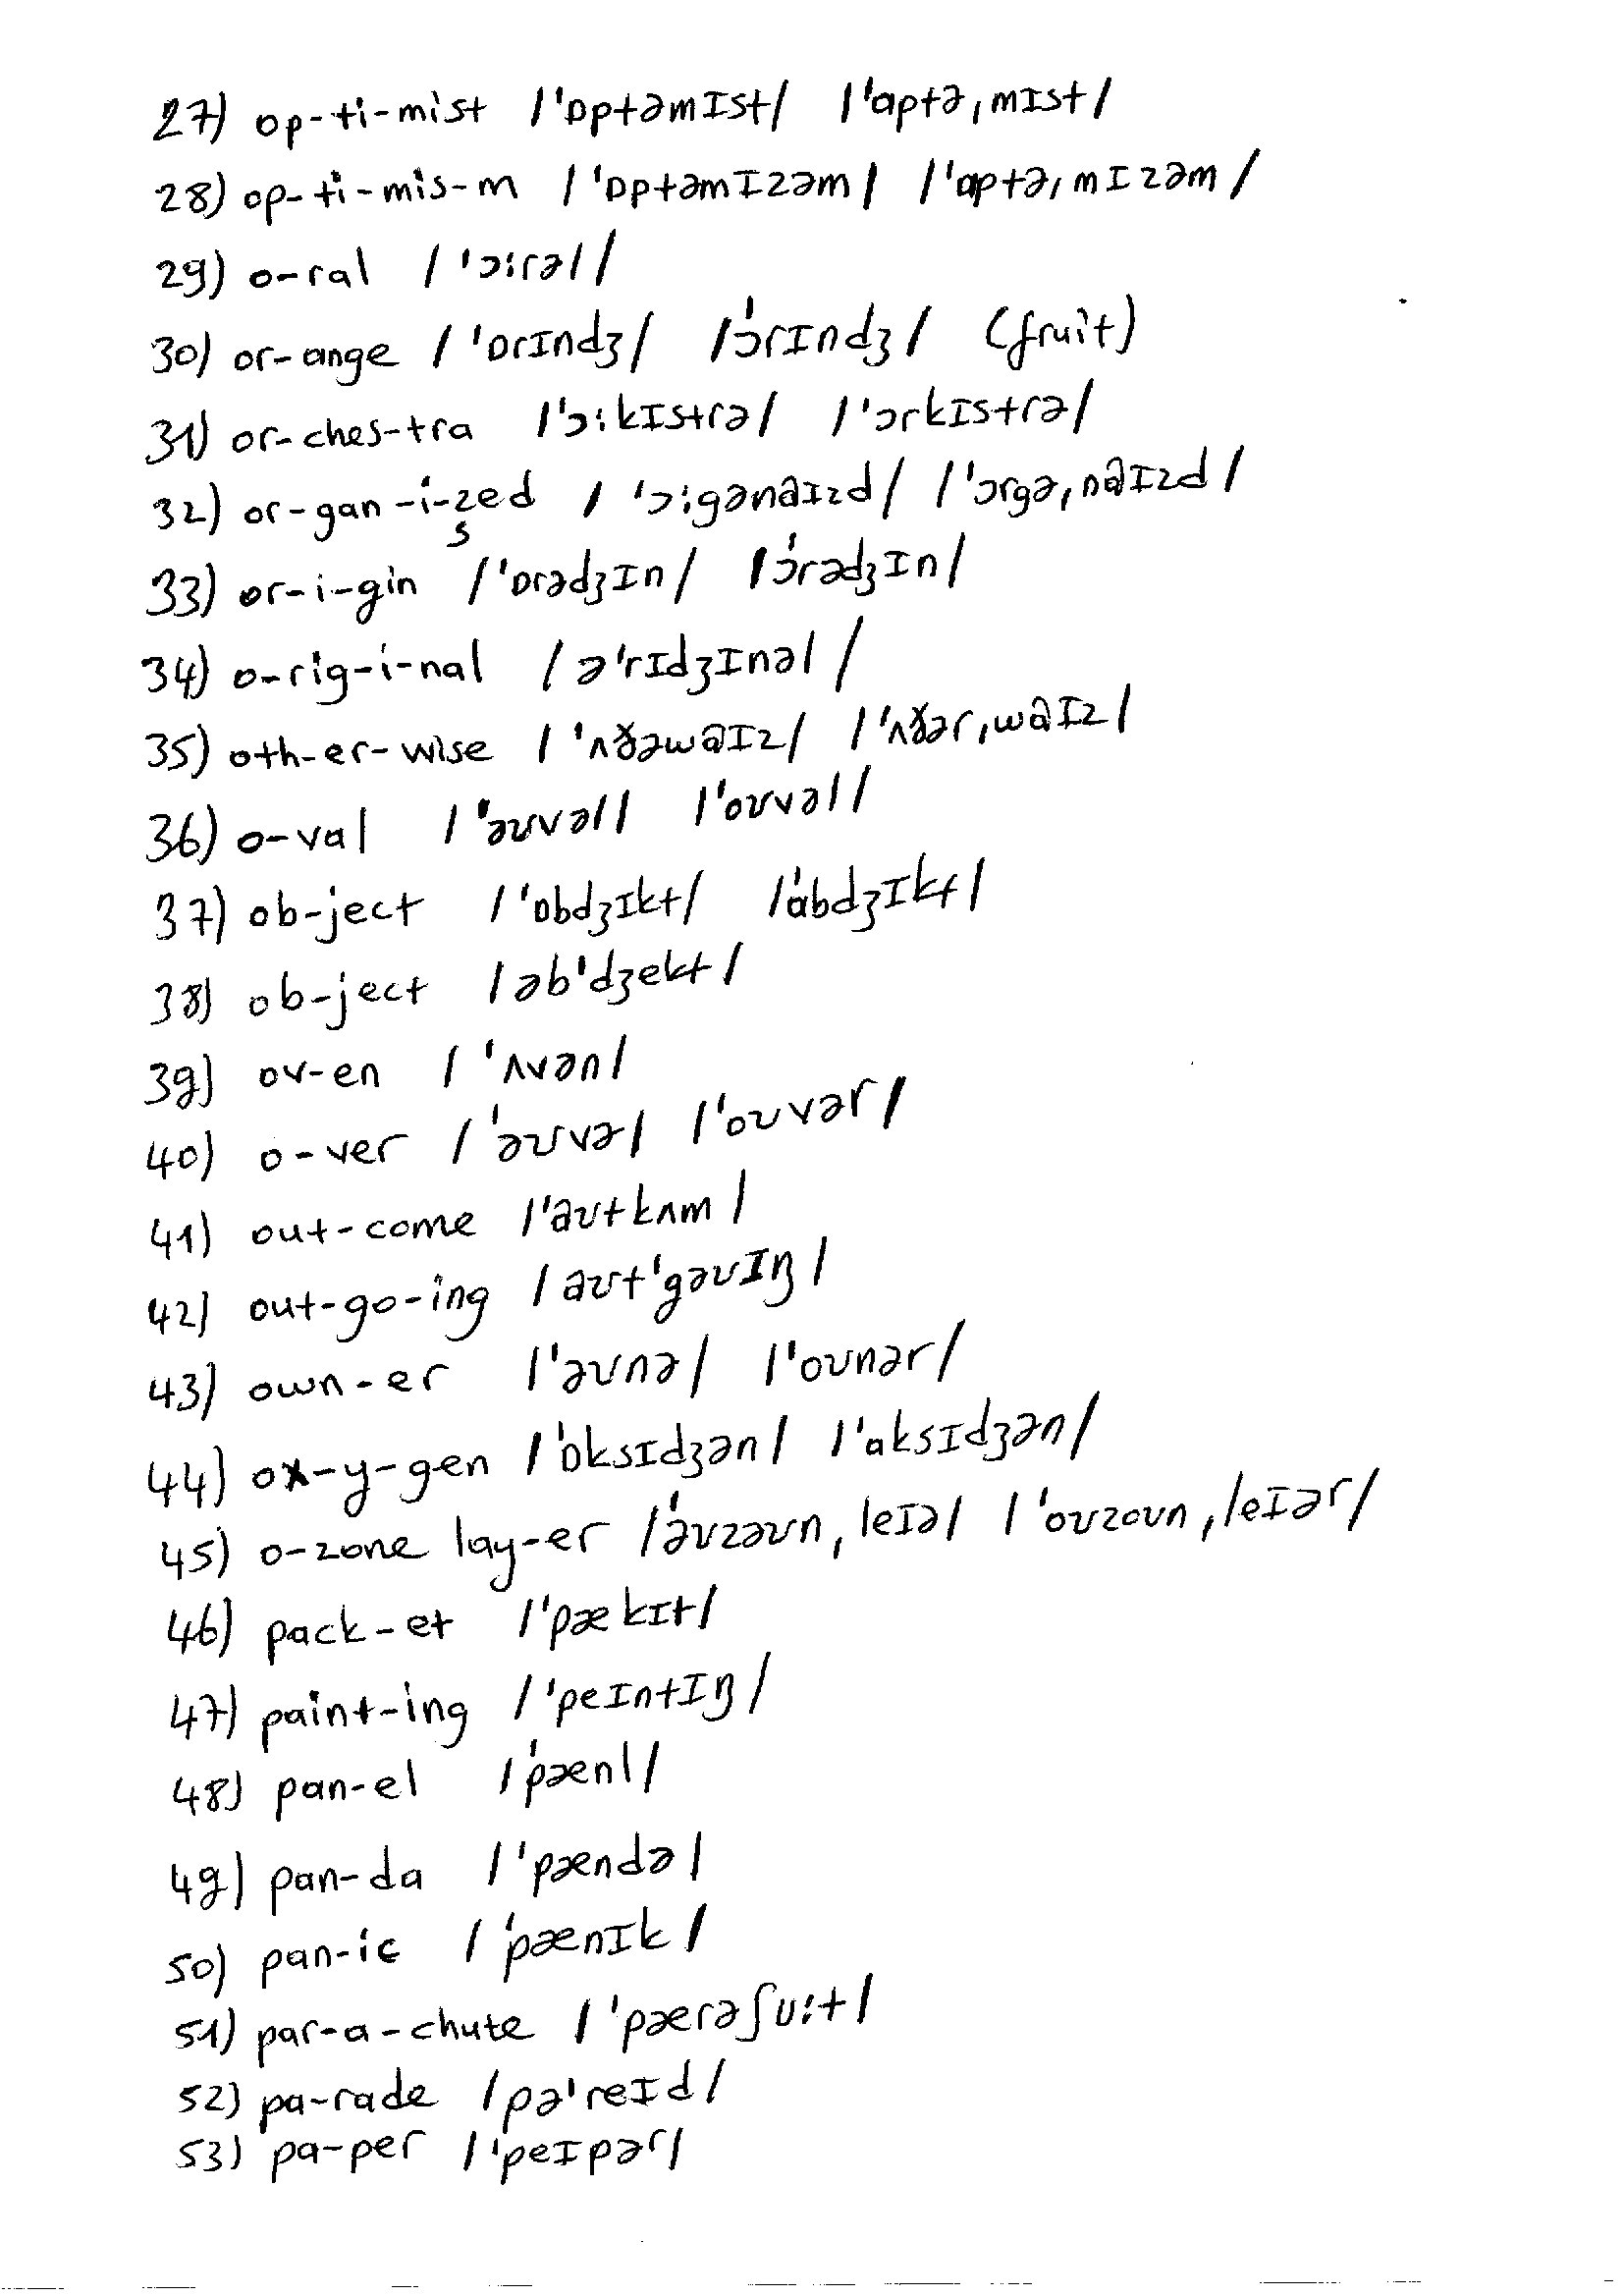 27) op-ti-mist /'ɒptəmɪst/ /'aptə,mɪst/
28) op-ti-mis-m /'ɒptəmɪzəm/ /'aptə,mɪzəm/
29) o-ral /'ɔ:rəl/
30) or-ange /'ɒrɪndʒ/ /'ɔrɪndʒ/ (fruit)
31) or-ches-tra /'ɔ:kɪstrə/ /'ɔrkɪstrə/
32) or-gan-i-zed /'ɔ:gənaɪzd/ /'ɔrgə,naɪzd/
s
33) or-i-gin /'ɒrədʒɪn/ /'ɔrədʒɪn/
34) o-rig-i-nal /ə'rɪdʒɪnəl/
35) oth-er-wise /'ʌðəwaɪz/ /'ʌðər,waɪz/
36) o-val /'əʊvəl/ /'oʊvəl/
37) ob-ject /'ɒbdʒɪkt/ /'abdʒɪkt/
38) ob-ject /əb'dʒekt/
39) ov-en /'ʌvən/
40) o-ver /'əʊvə/ /'oʊvər/
41) out-come /'aʊtkʌm/
42) out-go-ing /aʊt'gəʊɪŋ/
43) own-er /'əʊnə/ /'oʊnər/
44) ox-y-gen /'ɒksɪdʒən/ /'aksɪdʒən/
45) o-zone lay-er /'əʊzəʊn,leɪə/ /'oʊzoʊn,leɪər/
46) pack-et /'pækɪt/
47) paint-ing /'peɪntɪŋ/
48) pan-el /'pænl/
49) pan-da /'pændə/
50) pan-ic /'pænɪk/
51) par-a-chute /'pærəʃu:t/
52) pa-rade /pə'reɪd/
53) pa-per /'peɪpər/